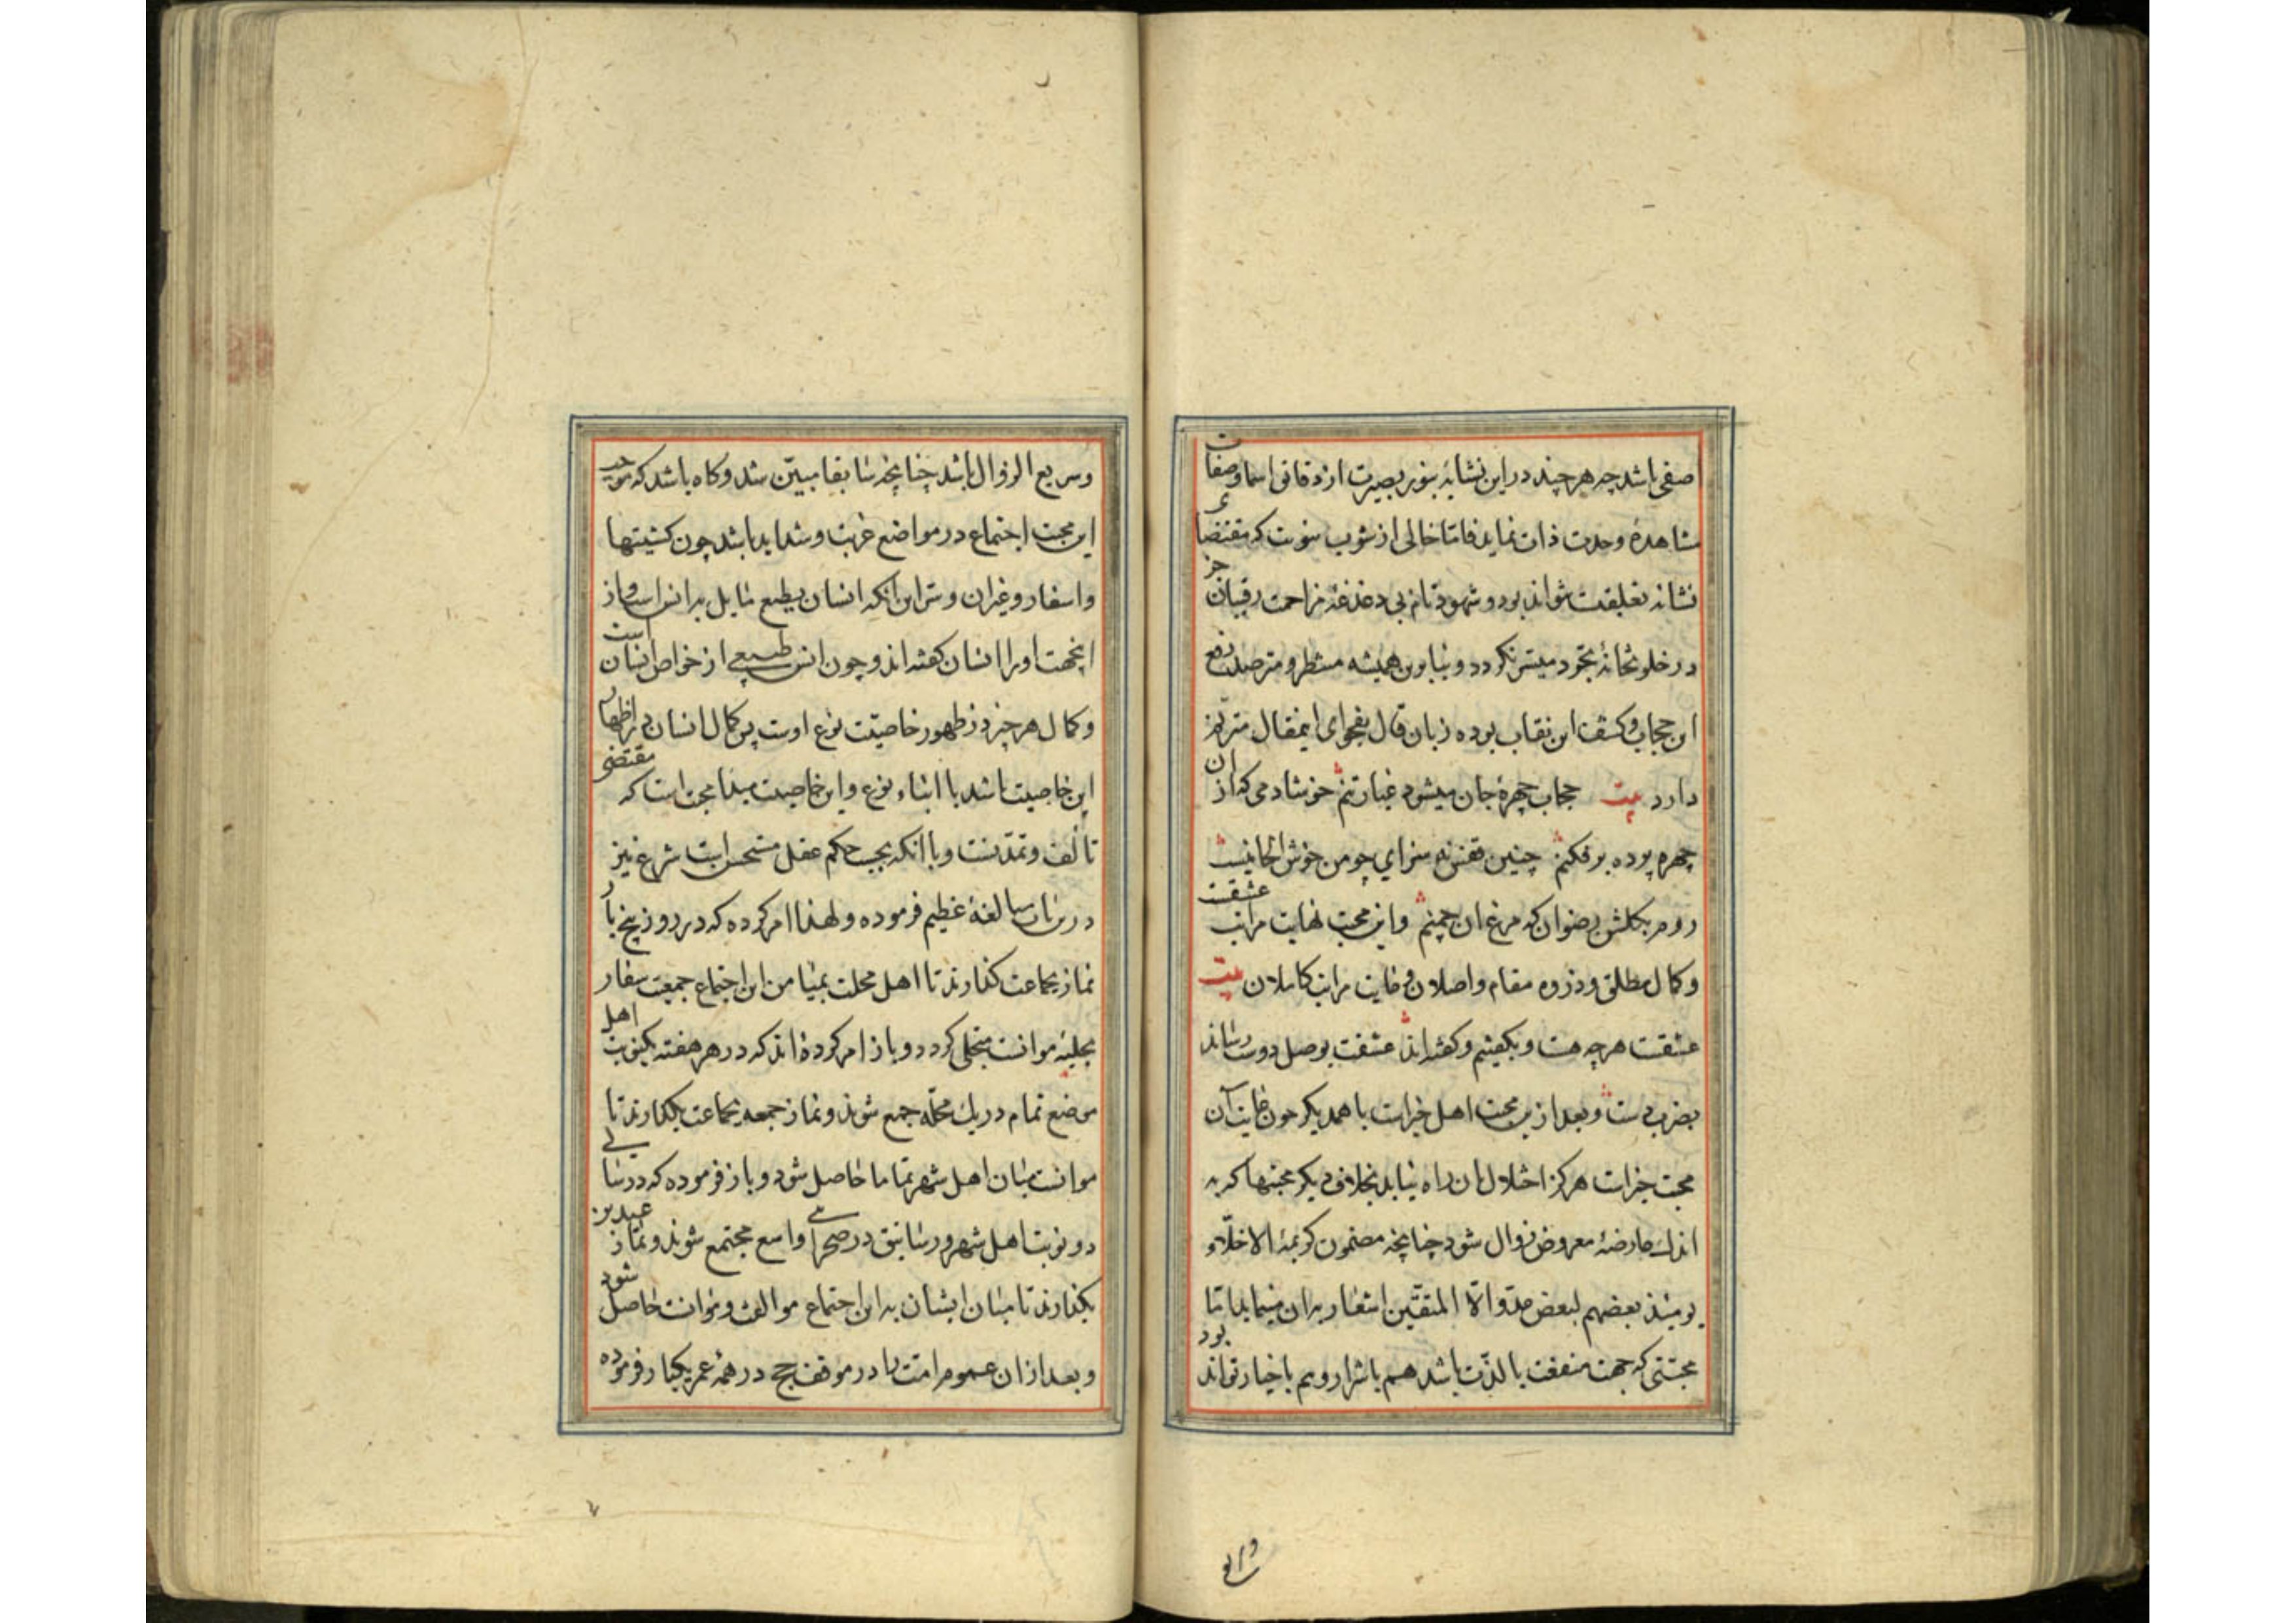 اصفی باشد چه هر چند در این نشانه بنور بصیرت از دقایق اسما و صفات
مشاهدهٔ وحدت ذات نماید فاما خالی از شوب نیست که مقتضاء
نشانه تعلیقست نتواند بود و شهود تام بی دغدغهٔ مزاحمت رقیبان جز
در خلوتخانهٔ تجرد میسر نگردد و بنابرین همیشه منتظر و مترصد رفع
این حجاب و کشف این نقاب بوده زبان قال بفحوای اینمقال مترنم
دارد بیت حجاب چهرهٔ جان میشود غبار تنم خوشا دمی که از ان
چهره پرده برفکنم چنین قفس نه سزای چو من خوش الحانیست
روم بکلشن رضوان که مرغ ان چمنم و این محبت نهایت مراتب عشقست
و کمال مطلق و ذروه مقام واصلان و غایت مراتب کاملان بیت
عشقست هرچه هست و بکفتیم و کفته‌اند عشقت بوصل دوست رساند
بضرب دست و بعد ازین محبت اهل خیرات با همدیکر چون غایت آن
محبت خیرات هرکز اختلال بان راه نیابد بخلاف دیکر محبتها که به
اندک عارضهٔ معروض زوال شود چنانچه مضمون کریمهٔ الاخلّاء
یومئذ بعضهم لبعض عدوّ الاّ المتقّین اشعار بدان مینماید اما
محبّتی که جهت منفعت یا لذّت باشد هم باشرار و هم باخیار تواند بود
و سریع الزوال باشد چنانچه سابقا مبیّن شد و کاه باشد که موجب
این محبت اجتماع در مواضع غربت و شداید باشد چون کشتیها
و اسفار و غیران و سر این انکه انسان بطبع مایل بانس است و از
اینجهت او را انسان کفته‌اند و چون انس طبیعی از خواص انسان است
و کمال هر چیز در ظهور خاصیّت نوع اوست پس کمال انسان در اظهار
این خاصیت باشد با ابناء نوع و این خاصیت مبدا محبت است که مقتضی
تألف و تمدّنست و با انکه بحسب حکم عقل مستحسن است شرع نیز
درین باب مبالغهٔ عظیم فرموده و لهذا امر کرده که در روز پنج بار
نماز بجماعت کذارند تا اهل محلت بمیامن این اجتماع جمعیت
بحلیهٔ موانست متحلی کردد و باز امر کرده‌اند که در هر هفته یکنوبت اهل
موضع تمام در یک محلّه جمع شوند و نماز جمعه بجماعت بکذارند تا
موانست میان اهل شهر تماما حاصل شود و باز فرموده که در سالی
دو نوبت اهل شهر و رساتیق در صحرائی واسع مجتمع شوند و نماز عیدین
بکذارند تا میان ایشان به این اجتماع موالفت و موانست حاصل شود
و بعد از ان عموم امت را در موقف حج در همهٔ عمر یکبار فرموده